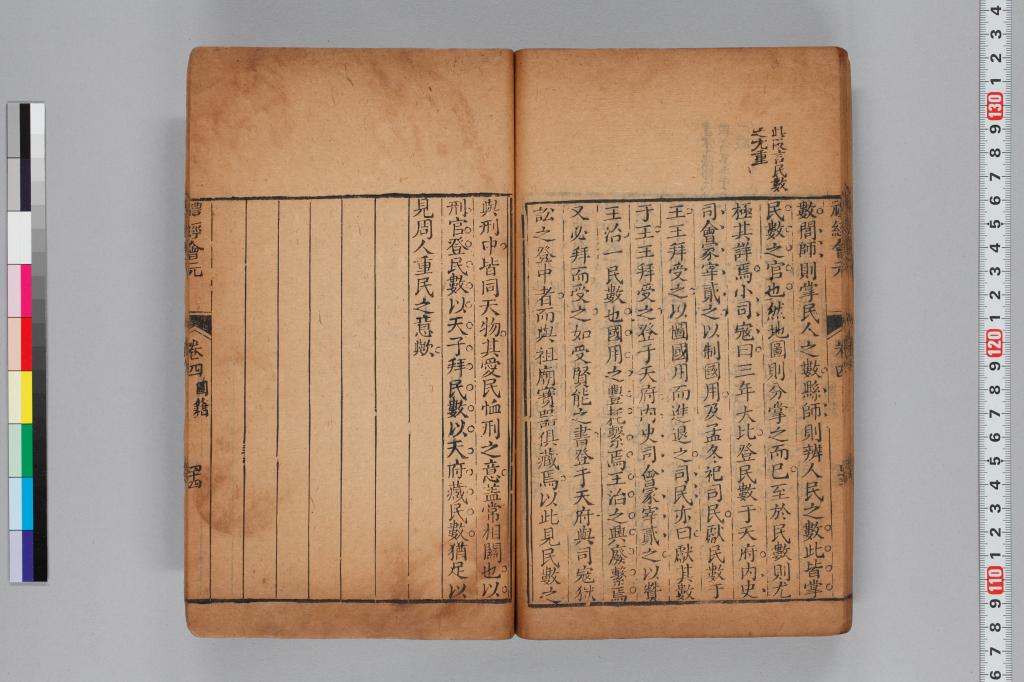 此段言民數
之尤重
禮經會元
卷四
數閭師則掌民人之數縣師則辨人民之數此皆掌
民數之官也然地圖則分掌之而已至於民數則尤
極其詳焉小司寇曰三年大比登民數于天府内史
司會冢宰貳之以制國用及孟冬祀司民獻民數于
王王拜受之以圖國用而進退之司民亦曰獻其數
于王王拜受之登于天府内史司會冢宰貳之以贊
王治一民數也國用之豐耗繫焉王治之興廢繫焉
又必拜而受之如受賢能之書登于天府與司寇獄
訟之登中者而與祖廟寳器俱藏焉以此見民數之
與刑中皆同天物其愛民恤刑之意蓋常相關也以
刑官登民數以天子拜民數以天府藏民數猶足以
見周人重民之意歟
禮經會元
卷四
圖籍
四十四